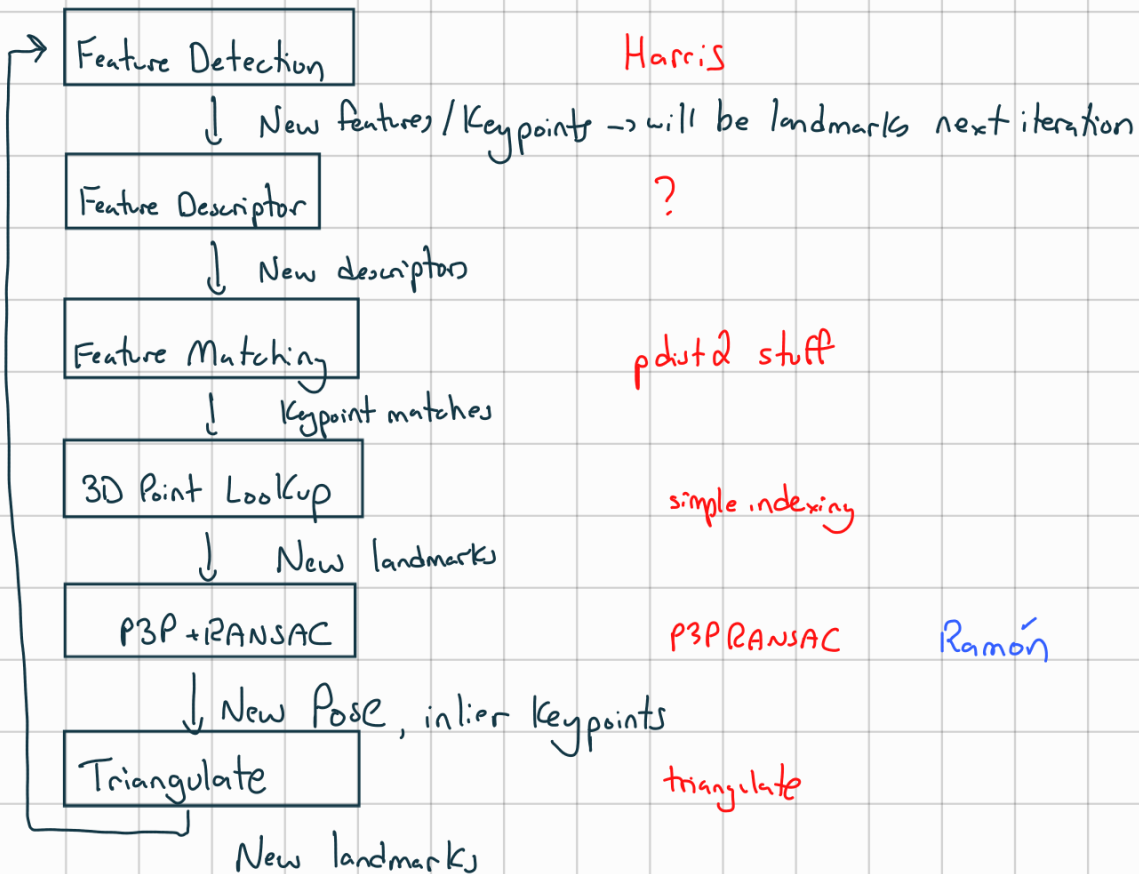 Feature Detection Harris
New features/Keypoints → will be landmarks next iteration
Feature Descriptor ?
New descriptors
Feature Matching pdist2 stuff
Keypoint matches
3D Point Lookup simple indexing
New landmarks
P3P+RANSAC P3PRANSAC Ramón
New Pose, inlier Keypoints
Triangulate triangulate
New landmarks